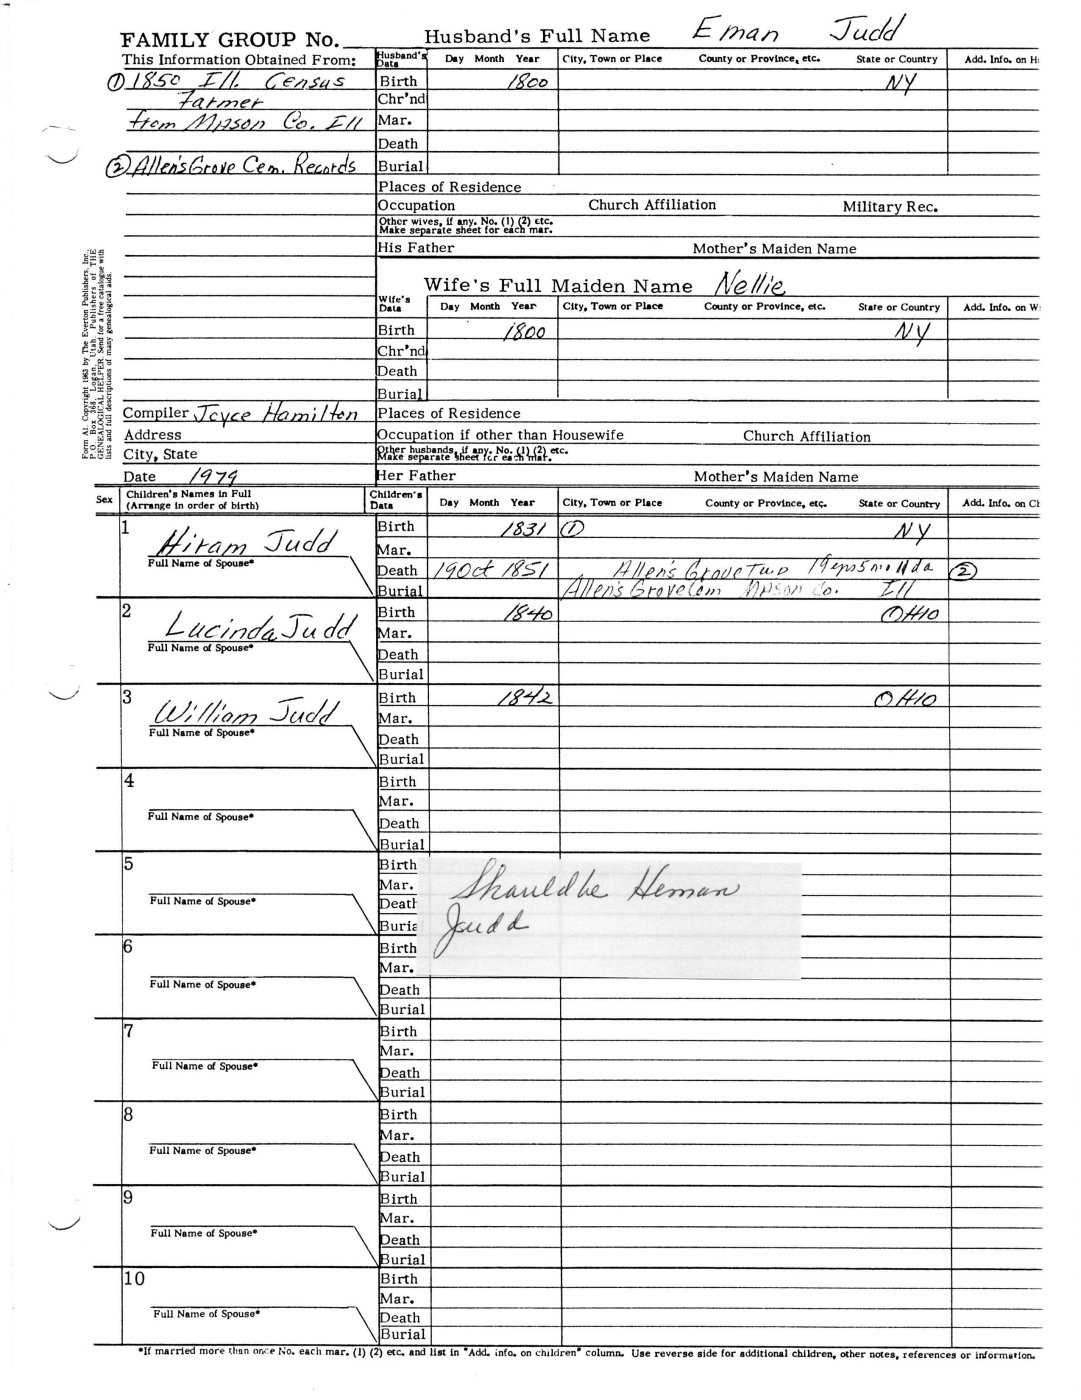 FAMILY GROUP No. Husband's Full Name Eman Judd
This Information Obtained From: Husband's Data Day Month Year City, Town or Place County or Province, etc. State or Country Add. Info. on H
① 1850 Ill. Census Birth 1800 NY
Farmer Chr'nd
from Mason Co. Ill Mar.
Death
② Allen's Grove Cem. Records Burial
Places of Residence
Occupation Church Affiliation Military Rec.
Other wives, if any. No. (1) (2) etc.
Make separate sheet for each mar.
His Father Mother's Maiden Name
Wife's Full Maiden Name Nellie
Wife's Data Day Month Year City, Town or Place County or Province, etc. State or Country Add. Info. on W
Birth 1800 NY
Chr'nd
Death
Burial
Form A1. Copyright 1963 by The Everton Publishers, Inc.,
P.O. Box 368, Logan, Utah, Publishers of THE
GENEALOGICAL HELPER. Send for a free catalogue with
lists and full descriptions of many genealogical aids.
Compiler Joyce Hamilton Places of Residence
Address Occupation if other than Housewife Church Affiliation
City, State Other husbands, if any. No. (1) (2) etc.
Make separate sheet for each mar.
Date 1979 Her Father Mother's Maiden Name
Sex Children's Names in Full (Arrange in order of birth) Children's Data Day Month Year City, Town or Place County or Province, etc. State or Country Add. Info. on Ch
1 Birth 1831 ① NY
Hiram Judd Mar.
Full Name of Spouse* Death 19 Oct 1851 Allen's Grove Twp 19yrs 5mo 11da ②
Burial Allen's Grove Cem Mason Co. Ill
2 Birth 1840 OHIO
Lucinda Judd Mar.
Full Name of Spouse* Death
Burial
3 Birth 1842 OHIO
William Judd Mar.
Full Name of Spouse* Death
Burial
4 Birth
Mar.
Full Name of Spouse* Death
Burial
5 Birth
Mar. Should be Heman
Full Name of Spouse* Death
Judd
Buria
6 Birth
Mar.
Full Name of Spouse* Death
Burial
7 Birth
Mar.
Full Name of Spouse* Death
Burial
8 Birth
Mar.
Full Name of Spouse* Death
Burial
9 Birth
Mar.
Full Name of Spouse* Death
Burial
10 Birth
Mar.
Full Name of Spouse* Death
Burial
*If married more than once No. each mar. (1) (2) etc. and list in "Add. info. on children" column. Use reverse side for additional children, other notes, references or information.